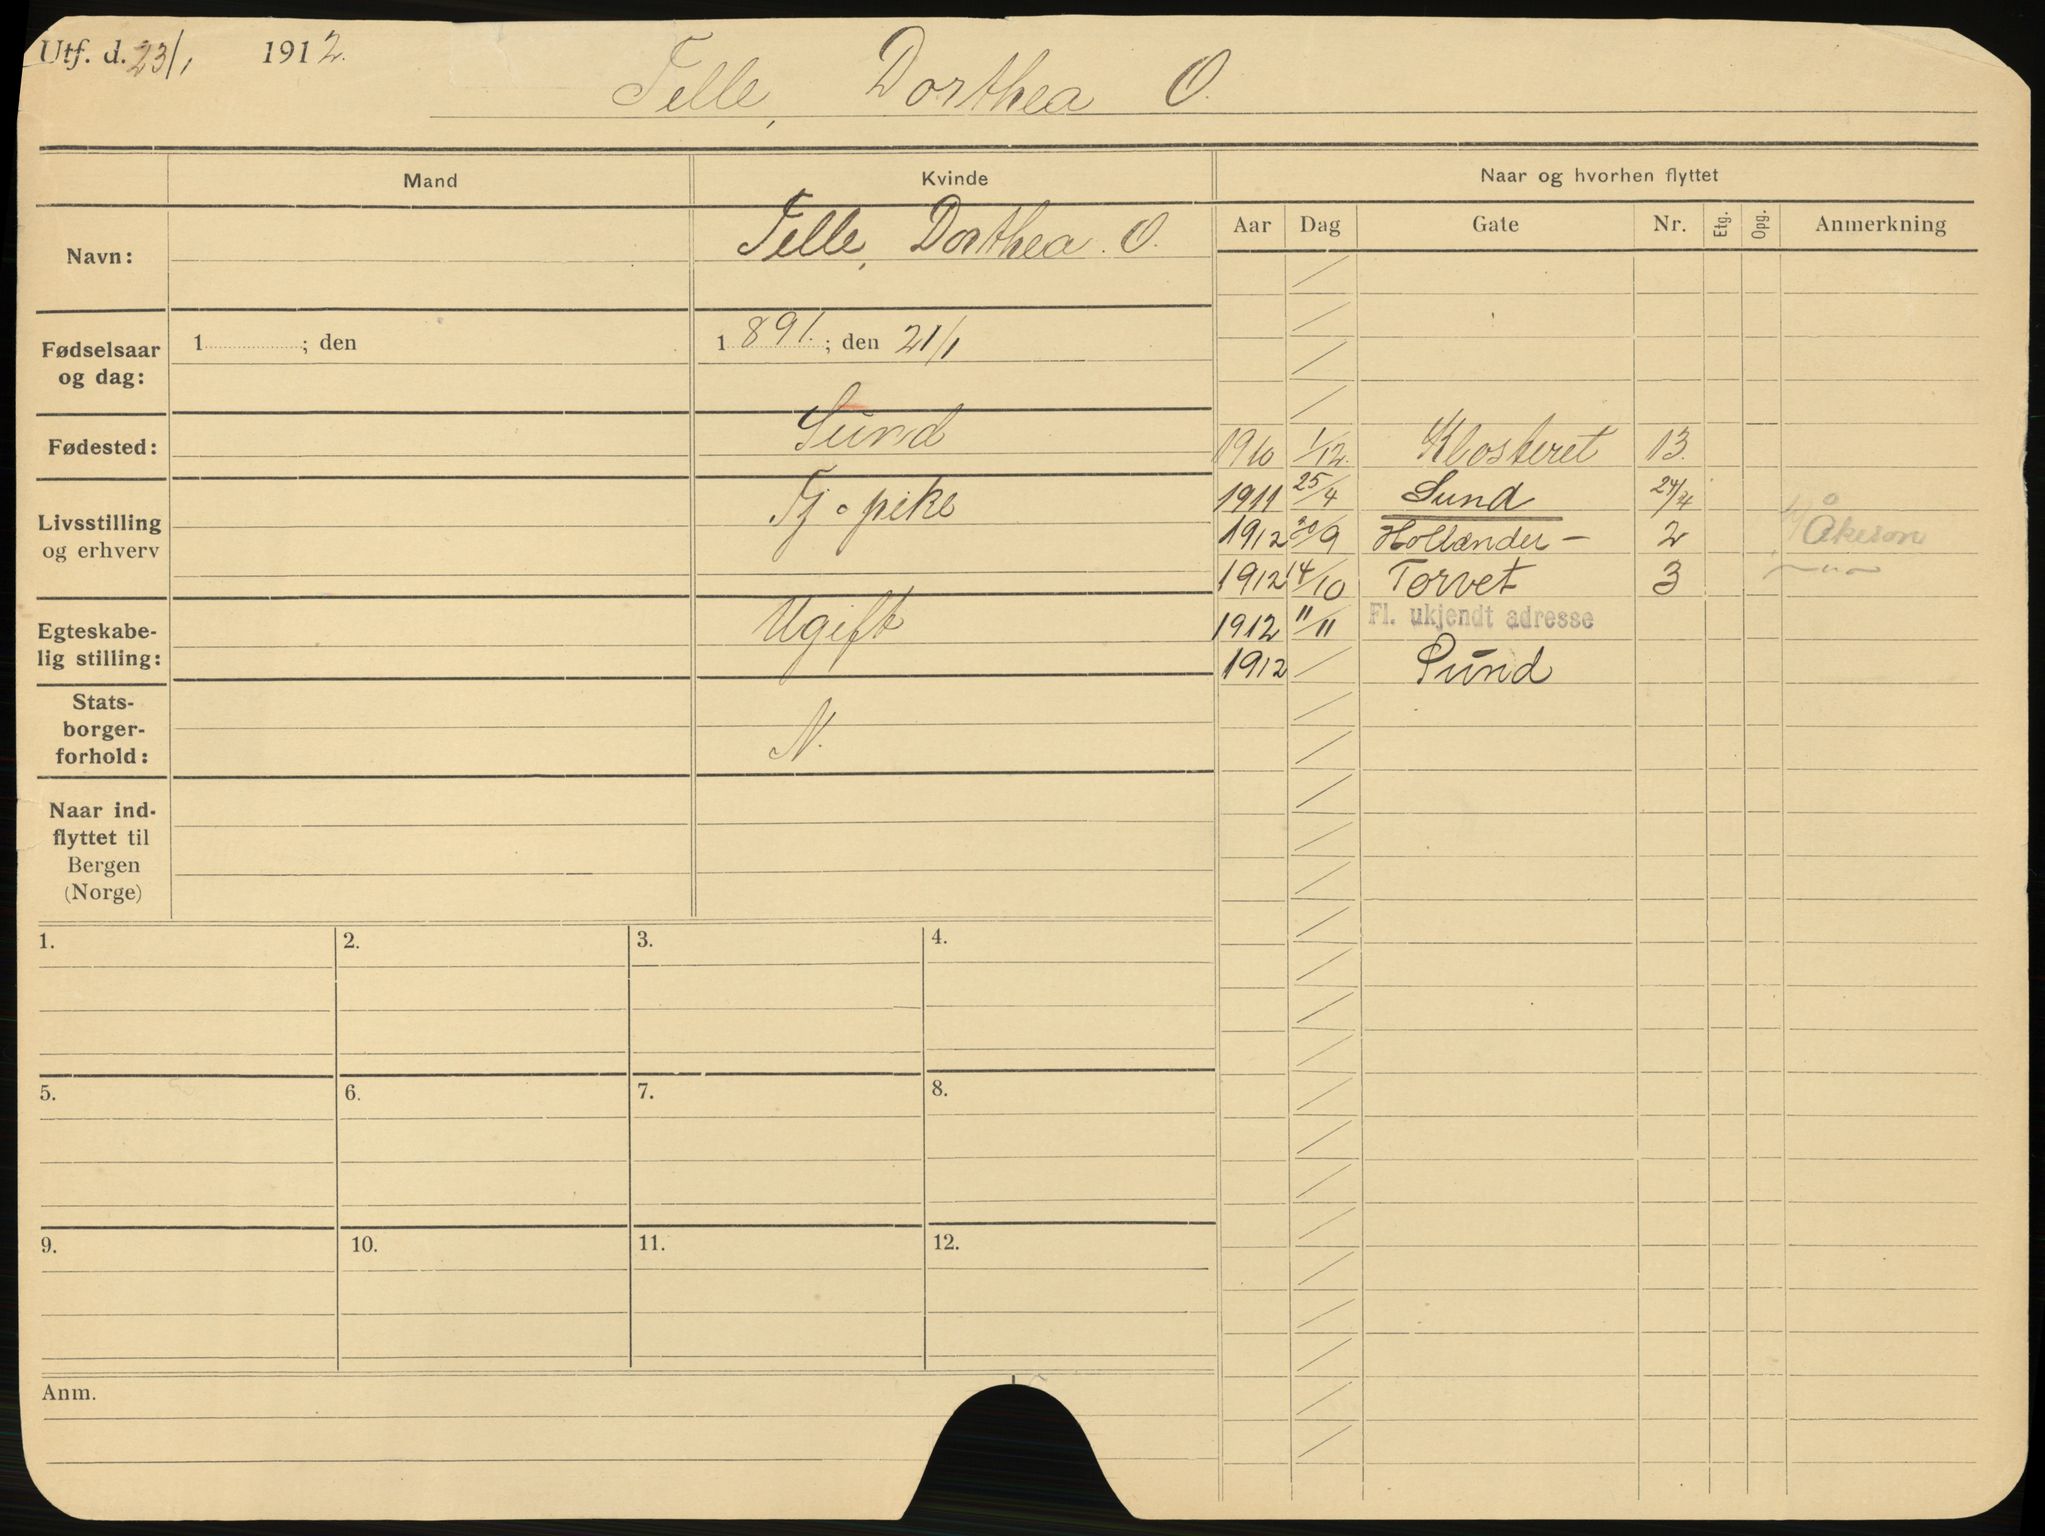 Utf. d. 23/1 1912.
Telle, Dorthea O.
Mand Kvinde Naar og hvorhen flyttet
Aar Dag Gate Nr. Etg. Opg. Anmerkning
Navn: Telle, Dorthea O.
Fødselsaar og dag: 1 ; den 1891. ; den 21/1
Fødested: Sund
Livsstilling og erhverv Tj.pike
Egteskabe-
lig stilling: Ugift
Stats-
borger-
forhold: N.
Naar ind-
flyttet til
Bergen
(Norge)
1910 1/12. Klosteret 13.
1911 25/4 Sund 24/4
1912 20/9 Hollænder- 2 Åkeson
1912 14/10 Torvet 3 -"-
1912 11/11 Fl. ukjendt adresse
1912 / Sund
1. 2. 3. 4.
5. 6. 7. 8.
9. 10. 11. 12.
Anm.